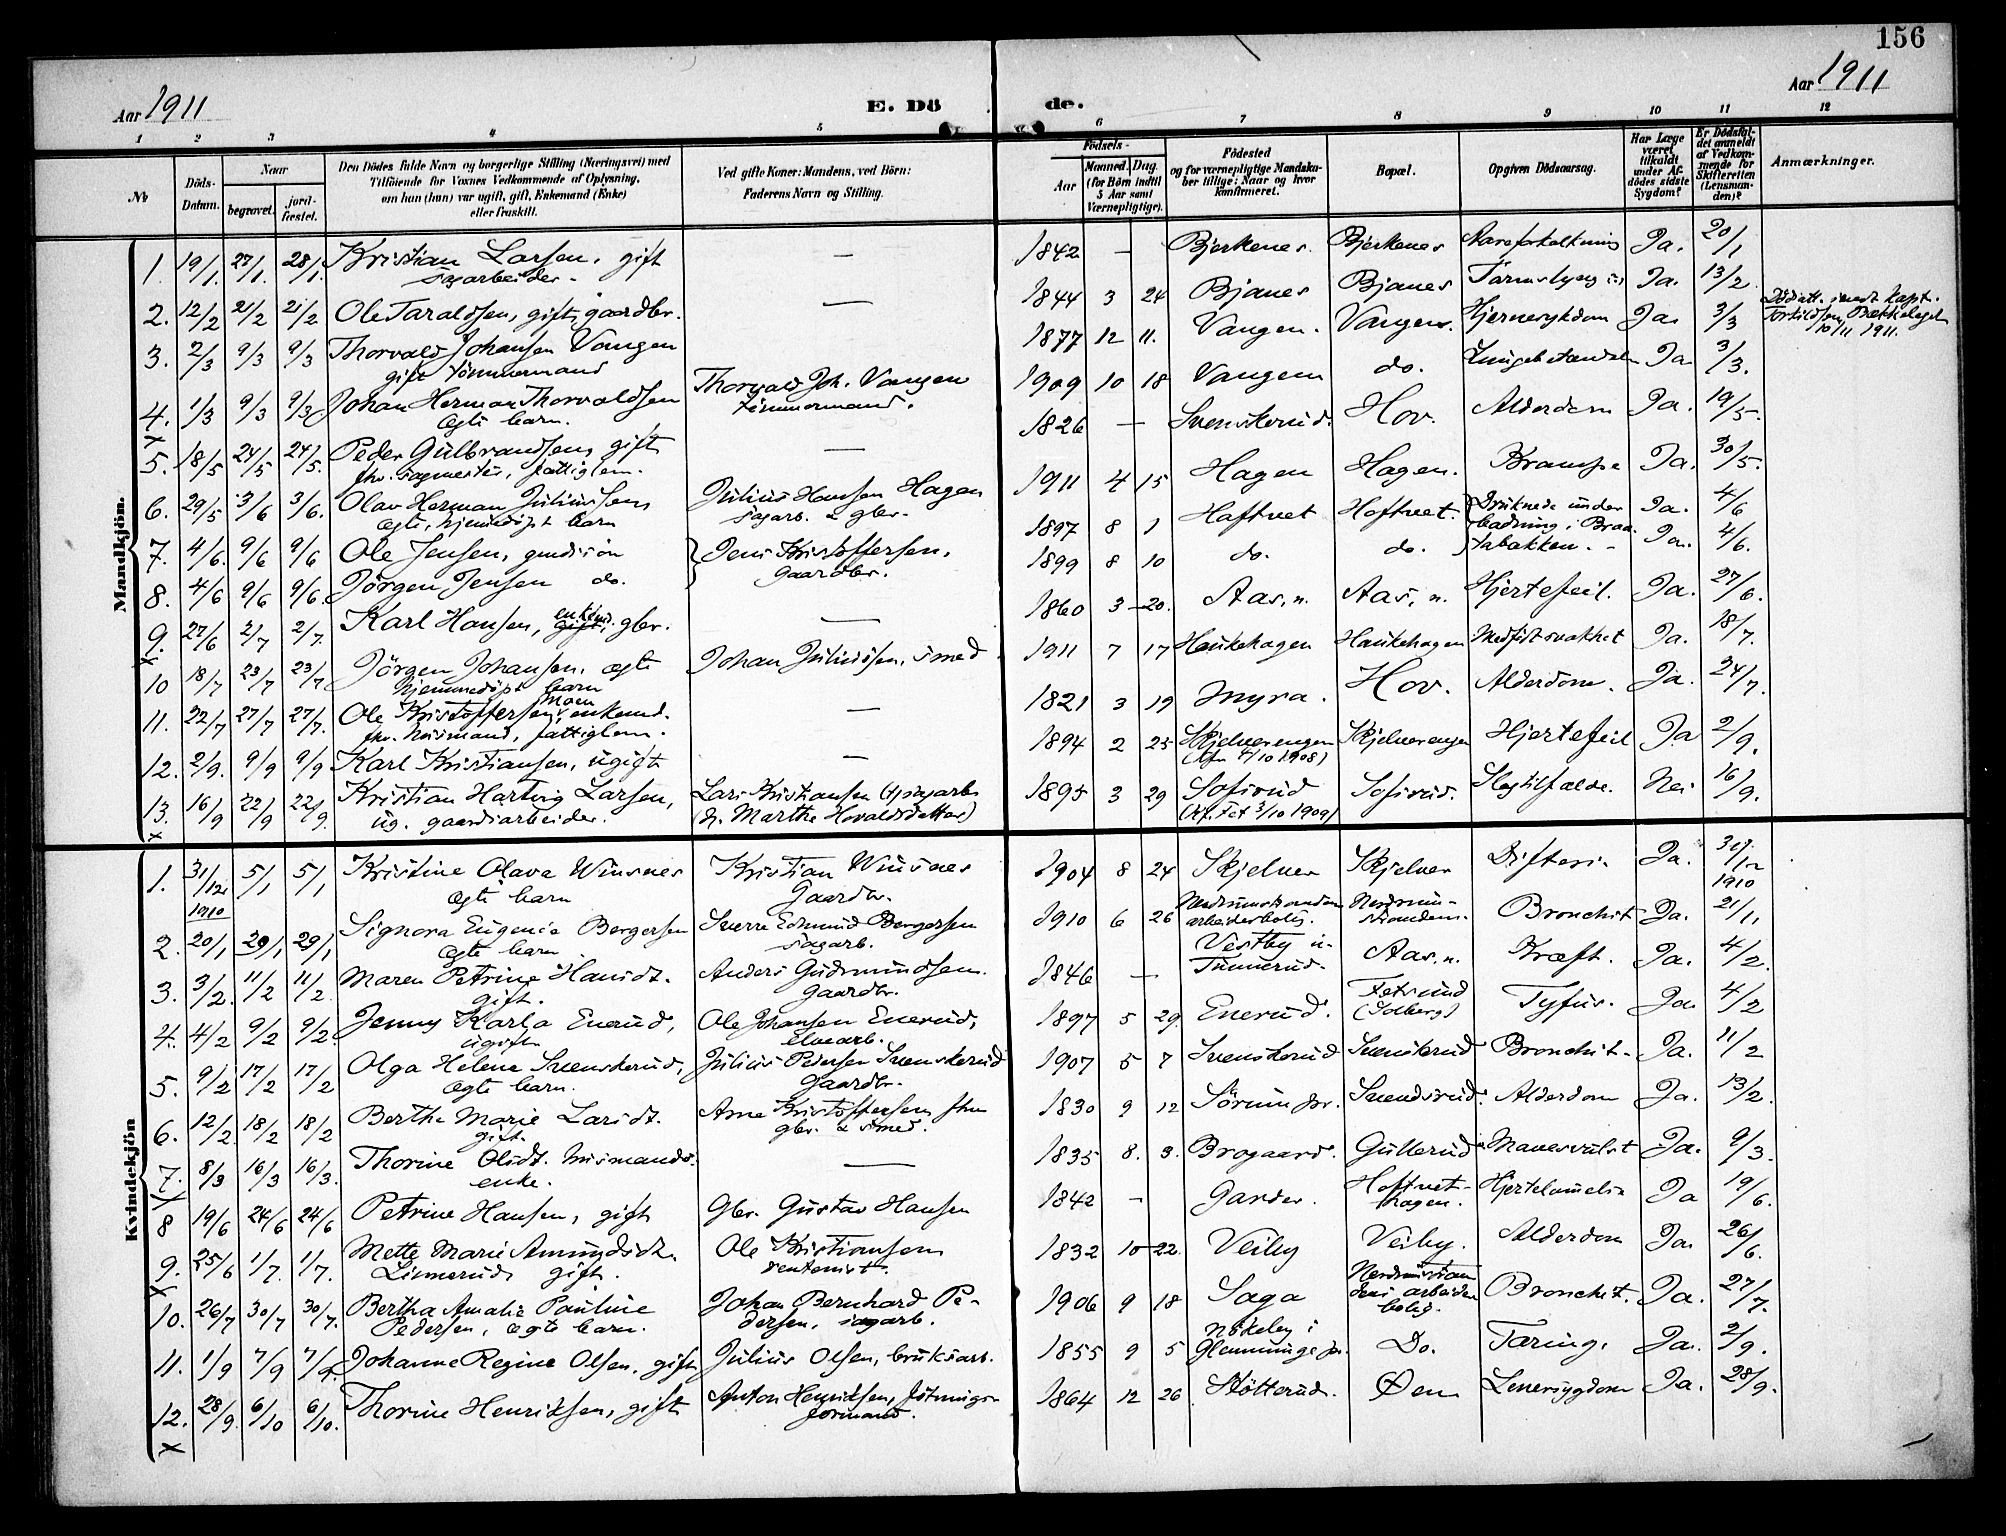 156
Aar 1911
E. Dö de.
Aar 1911
1 2 3 4 5 6 7 8 9 10 11 12
№
Döds-Datum.
Naar
begravet.
jord-fæstet.
Den Dödes fulde Navn og borgerlige Stilling (Næringsvei) med
Tilföiende for Voxnes Vedkommende af Oplysning,
om han (hun) var ugift, gift, Enkemand (Enke)
eller fraskilt.
Ved gifte Koner: Mandens, ved Börn:
Faderens Navn og Stilling.
Födsels-
Aar
Maaned. Dag.
(for Börn indtil
5 Aar samt
Værnepligtige).
Födested
og for værnepligtige Mandska-
ber tillige: Naar og hvor
konfirmeret.
Bopæl.
Opgiven Dödsaarsag.
Har Læge
været
tilkaldt
under Af-
dödes sidste
Sygdom?
Er Dödsfal-
det anmeldt
af Vedkom-
mende for
Skifteretten
(Lensman-
den)?
Anmærkninger.
Mandkjön.
1. 19/1. 27/1. 28/1. Kristian Larsen, gift — 1842 — Bjerkenes. Bjerkenes Ja. 20/1
sagarbeider.
2. 12/2 21/2 21/2 Ole Taraldsen, gift, gaardbr. — 1844 3 24 Bjanes Bjanes Ja. 13/2
3. 2/3 9/3 9/3 Thorvald Johansen Vangen 1877 12 11. Vangen. Vangen. Hjernesygdom Ja 3/3
gift Tömmermand
10/11 1911.
4. 1/3 9/3 9/3 Johan Herman Thorvaldsen Thorvald Joh. Vangen 1909 10 18 Vangen do. Ja 3/3.
ægte barn. tömmermand.
5. 18/5 24/5 24/5. Peder Gulbrandsen, gift — 1826 — Svenskerud. Hov. Alderdom Ja. 19/5.
fhv. sagmester, fattiglem.
6. 29/5 3/6 3/6. Olav Herman Juliussen Julius Hansen Hagen 1911 4 15 Hagen Hagen. Krampe Ja. 30/5.
ægte, hjemmedöpt barn sagarb. & gbr.
7. 4/6. 9/6 9/6 Ole Jensen, gaardsön Jens Kristoffersen, 1897 8 1 Haftvet Hoftvet. Druknede under Ja. 4/6
gaardbr. badning i
8. 4/6 9/6 9/6. Jörgen Jensen do. 1899 8 10 do. do. Ja. 4/6.
9. 27/6 2/7 2/7. Karl Hansen, enkem. gift, gbr. — 1860 3 20. Aas, n. Aas, n. Hjertefeil. Ja. 27/6.
10 18/7 23/7 23/7 Jörgen Johansen, ægte Johan Juliussen, smed 1911 7 17 Haukehagen Haukehagen Medfödt svakhet Ja. 18/7.
hjemmedöpt barn
11. 22/7 27/7 27/7. Ole Kristoffersen Moen, enkemd. — 1821 3 19 Myra. Hov. Alderdom. Ja. 24/7.
fhv. husmand, fattiglem.
12. 2/9. 9/9 9/9 Karl Kristiansen, ugift — 1894 2 25 Skjelverengen Skjelverengen Hjertefeil Ja 2/9.
(Kfm 4/10 1908)
13. 16/9 22/9 22/9. Kristian Hartvig Larsen, Lars Kristiansen (†) sagarb. 1895 3 29 Sofirud Sofirud. Slagtilfælde. Nei 16/9.
ug. gaardsarbeider. (& Marthe Hovaldsdatter) (Kf. Fet 3/10 1909)
Kvindekjön
1. 31/12 1910 5/1 5/1 Kristine Olava Winsnes Kristian Winsnes 1904 8 24 Skjelver Skjelver Difteri. Ja. 31/12 1910
ægte barn Gaardbr.
2. 20/1 29/1 29/1 Signora Eugenia Bergersen Sverre Edmund Bergersen 1910 6 26 Bronchit Ja. 21/1.
ægte barn. sagarb. arbeiderbolig.
3. 3/2. 11/2 11/2. Maren Petrine Hansdt. Anders Gudmundsen. 1846 — Vestby u- Aas, n. Kræft. Ja. 4/2.
gift. gaardbr. Tunnerud.
4. 4/2 9/2 9/2. Jenny Karla Enerud, Ole Johansen Enerud, 1897 5 29. Enerud. Fetsund Tyfus. Ja 4/2
ugift elvearb. (Solberg)
5. 9/2 17/2 17/2 Olga Helene Svenskerud, Julius Pedersen Svenskerud 1907 5 7 Svenskerud Svenskerud Bronchit. Ja. 11/2
ægte barn. gaardbr.
6. 12/2 18/2 18/2 Berthe Marie Larsdt. Arne Kristoffersen fhv. 1830 9 12 Sörum pr. Svendsrud. Alderdom Ja. 13/2.
gift. gbr. & smed.
7. 8/3 16/3 16/3. Thorine Olsdt. husmands- — 1835 8. 3. Brogaard. Gullerud Mavesvulst Ja. 9/3.
enke.
8 19/6 24/6 24/6 Petrine Hansen, gift Gbr. Gustav Hansen 1842 - Garder. Hoftvet- Hjertelamelse Ja 19/6.
hagen.
9. 25/6 1/7. 1/7. Mette Marie Amundsdt. Ole Kristiansen 1832 10 22. Veiby Veiby. Alderdom Ja. 26/6.
Linnerud, gift. rentenist.
10. 26/7 30/7 30/7. Bertha Amalie Pauline Johan Bernhard Pe- 1906 9 18 Saga Bronchit. Ja. 27/7.
Pedersen, ægte barn. dersen, sagarb.
11. 1/9 7/9 7/9. Johanne Regine Olsen, gift Julius Olsen, bruksarb. 1855 9 5 Nökleby i Do. Tæring. Ja. 2/9.
Glemminge pr.
12. 28/9. 6/10 6/10. Thorine Henriksen, gift Anton Henriksen, 1864 12 26 Stötterud. Øen Leversygdom Ja. 28/9.
formand.